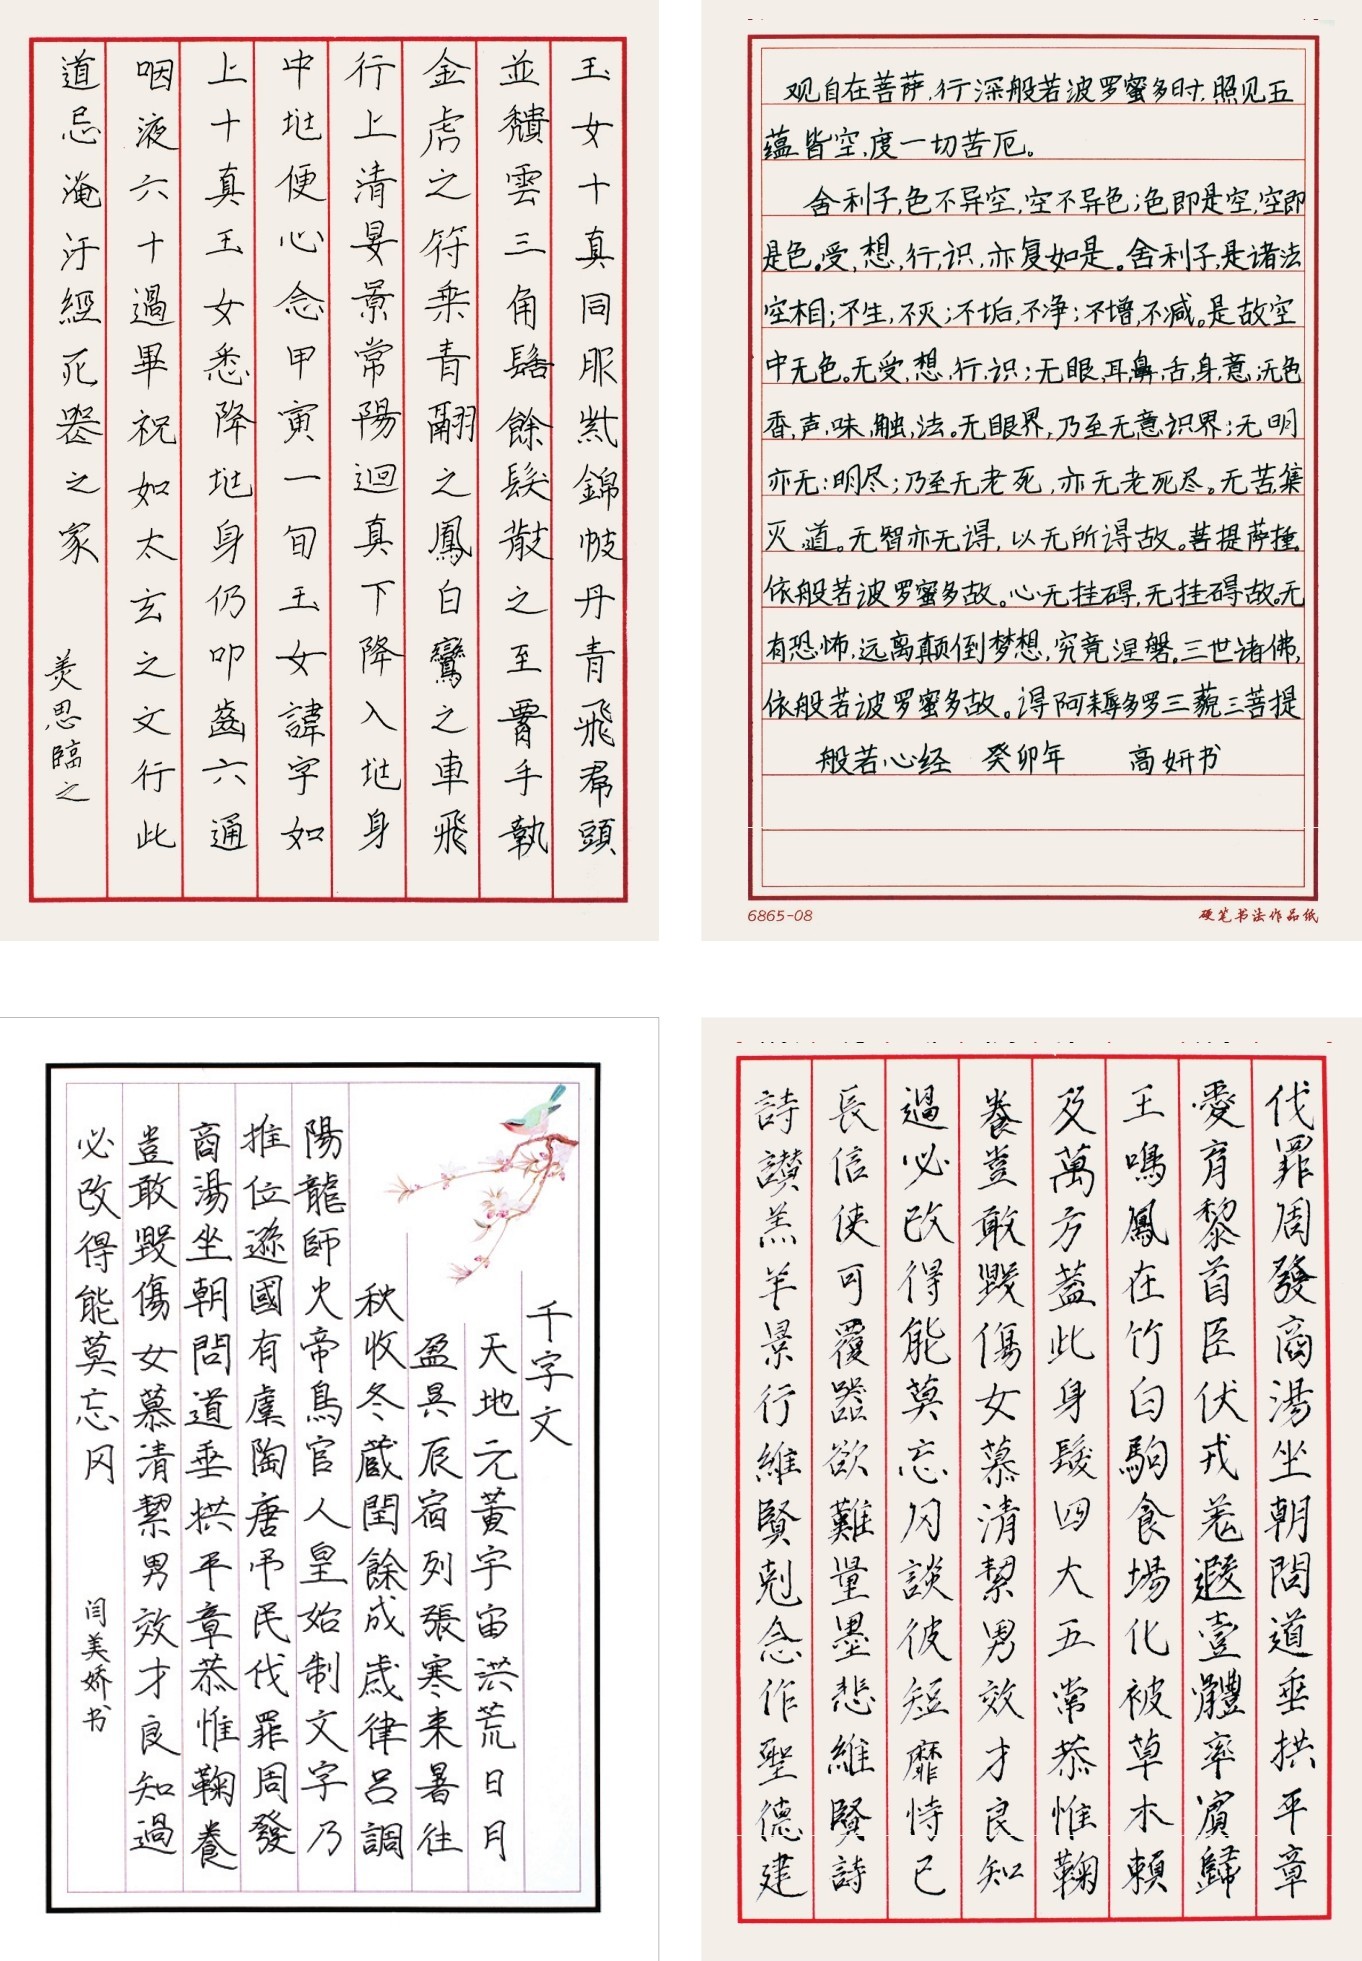 玉女十真同服紫錦帔丹青飛帬頭
並頹雲三角髻餘髮散之至胥手執
金虎之符乘青翮之鳳白鸞之車飛
行上清晏景常陽迴真下降入坒身
中坒便心念甲寅一旬玉女諱字如
上十真玉女悉降坒身仍叩齒六通
咽液六十過畢祝如太玄之文行此
道忌淹汙經死喪之家
美思臨之
观自在菩萨,行深般若波罗蜜多时,照见五
蕴皆空,度一切苦厄。
舍利子,色不异空,空不异色;色即是空,空即
是色。受,想,行,识,亦复如是。舍利子,是诸法
空相;不生,不灭;不垢,不净;不增,不减。是故空
中无色。无受,想,行,识;无眼,耳,鼻,舌,身,意;无色
香,声,味,触,法。无眼界,乃至无意识界;无明
亦无:明尽;乃至无老死,亦无老死尽。无苦,集
灭,道。无智亦无得,以无所得故。菩提萨埵,
依般若波罗蜜多故。心无挂碍,无挂碍故。无
有恐怖,远离颠倒梦想,究竟涅磐。三世诸佛,
依般若波罗蜜多故。得阿耨多罗三藐三菩提
般若心经 癸卯年 高妍书
6865-08
硬笔书法作品纸
千字文
天地元黃宇宙洪荒日月
盈昃辰宿列張寒来暑往
秋收冬蔵閏餘成歲律呂調
陽龍師火帝鳥官人皇始制文字乃
推位遜國有虞陶唐弔民伐罪周發
商湯坐朝問道垂拱平章恭惟鞠養
豈敢毀傷女慕清絜男效才良知過
必改得能莫忘冈
闫美娇书
伐罪周發商湯坐朝問道垂拱平章
愛育黎首臣伏戎羌遐壹體率賓歸
王鳴鳳在竹白駒食場化被草木賴
及萬方蓋此身髮四大五常恭惟鞠
養豈敢毀傷女慕清絜男效才良知
過必改得能莫忘罔談彼短靡恃己
長信使可覆器欲難量墨悲維賢詩
詩讚羔羊景行維賢剋念作聖德建